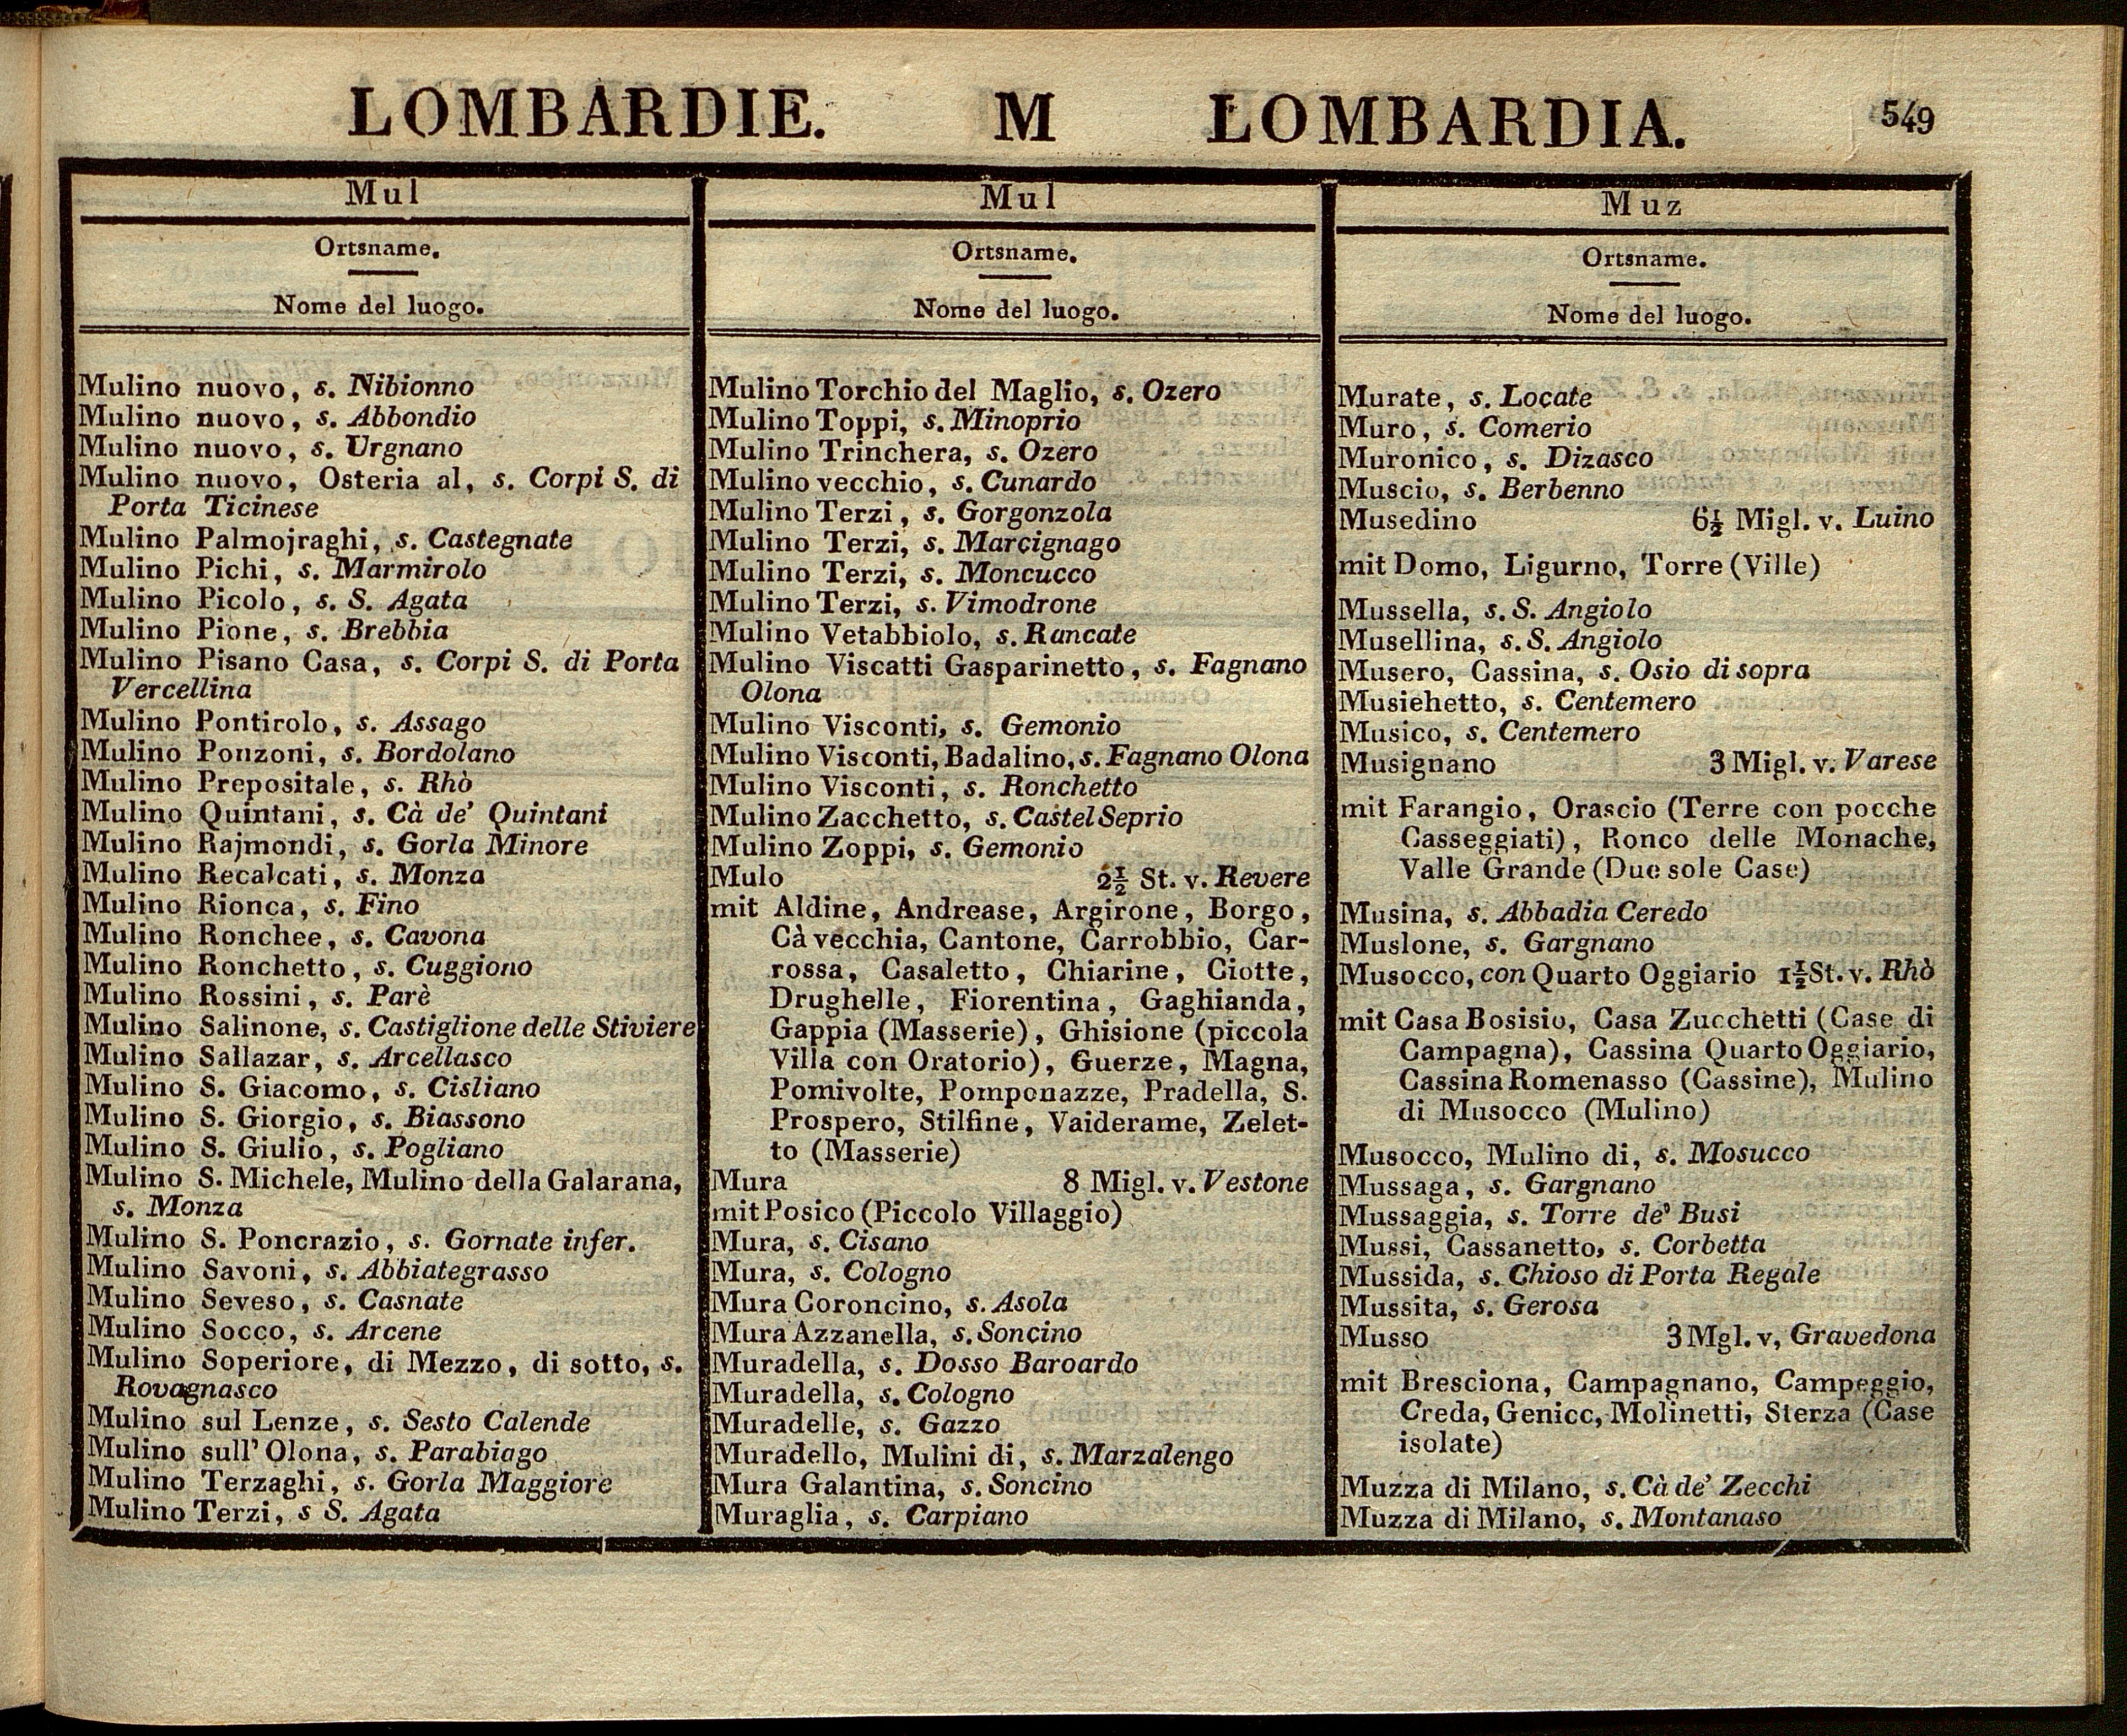 LOMBARDIE. M LOMBARDIA. 549
Mul
Ortsname.
Nome del luogo.
Mulino nuovo, s. Nibionno
Mulino nuovo, s. Abbondio
Mulino nuovo, s. Urgnano
Mulino nuovo, Osteria al, s. Corpi S. di
Porta Ticinese
Mulino Palmojraghi, s. Castegnate
Mulino Pichi, s. Marmirolo
Mulino Picolo, s. S. Agata
Mulino Pione, s. Brebbia
Mulino Pisano Casa, s. Corpi S. di Porta
Vercellina
Mulino Pontirolo, s. Assago
Mulino Ponzoni, s. Bordolano
Mulino Prepositale, s. Rhò
Mulino Quintani, s. Cà de' Quintani
Mulino Rajmondi, s. Gorla Minore
Mulino Recalcati, s. Monza
Mulino Rionca, s. Fino
Mulino Ronchee, s. Cavona
Mulino Ronchetto, s. Cuggiono
Mulino Rossini, s. Parè
Mulino Salinone, s. Castiglione delle Stiviere
Mulino Sallazar, s. Arcellasco
Mulino S. Giacomo, s. Cisliano
Mulino S. Giorgio, s. Biassono
Mulino S. Giulio, s. Pogliano
Mulino S. Michele, Mulino della Galarana,
s. Monza
Mulino S. Poncrazio, s. Gornate infer.
Mulino Savoni, s. Abbiategrasso
Mulino Seveso, s. Casnate
Mulino Socco, s. Arcene
Mulino Soperiore, di Mezzo, di sotto, s.
Rovagnasco
Mulino sul Lenze, s. Sesto Calende
Mulino sull' Olona, s. Parabiago
Mulino Terzaghi, s. Gorla Maggiore
Mulino Terzi, s S. Agata
Mul
Ortsname.
Nome del luogo.
Mulino Torchio del Maglio, s. Ozero
Mulino Toppi, s. Minoprio
Mulino Trinchera, s. Ozero
Mulino vecchio, s. Cunardo
Mulino Terzi, s. Gorgonzola
Mulino Terzi, s. Marcignago
Mulino Terzi, s. Moncucco
Mulino Terzi, s. Vimodrone
Mulino Vetabbiolo, s. Rancate
Mulino Viscatti Gasparinetto, s. Fagnano
Olona
Mulino Visconti, s. Gemonio
Mulino Visconti, Badalino, s. Fagnano Olona
Mulino Visconti, s. Ronchetto
Mulino Zacchetto, s. Castel Seprio
Mulino Zoppi, s. Gemonio
Mulo 2½ St. v. Revere
mit Aldine, Andrease, Argirone, Borgo,
Cà vecchia, Cantone, Carrobbio, Car-
rossa, Casaletto, Chiarine, Ciotte,
Drughelle, Fiorentina, Gaghianda,
Gappia (Masserie), Ghisione (piccola
Villa con Oratorio), Guerze, Magna,
Pomivolte, Pomponazze, Pradella, S.
Prospero, Stilfine, Vaiderame, Zelet-
to (Masserie)
Mura 8 Migl. v. Vestone
mit Posico (Piccolo Villaggio)
Mura, s. Cisano
Mura, s. Cologno
Mura Coroncino, s. Asola
Mura Azzanella, s. Soncino
Muradella, s. Dosso Baroardo
Muradella, s. Cologno
Muradelle, s. Gazzo
Muradello, Mulini di, s. Marzalengo
Mura Galantina, s. Soncino
Muraglia, s. Carpiano
Muz
Ortsname.
Nome del luogo.
Murate, s. Locate
Muro, s. Comerio
Muronico, s. Dizasco
Muscio, s. Berbenno
Musedino 6½ Migl. v. Luino
mit Domo, Ligurno, Torre (Ville)
Mussella, s. S. Angiolo
Musellina, s. S. Angiolo
Musero, Cassina, s. Osio di sopra
Musiehetto, s. Centemero
Musico, s. Centemero
Musignano 3 Migl. v. Varese
mit Farangio, Orascio (Terre con pocche
Casseggiati), Ronco delle Monache,
Valle Grande (Due sole Case)
Musina, s. Abbadia Ceredo
Muslone, s. Gargnano
Musocco, con Quarto Oggiario 1½ St. v. Rhò
mit Casa Bosisio, Casa Zucchetti (Case di
Campagna), Cassina Quarto Oggiario,
Cassina Romenasso (Cassine), Mulino
di Musocco (Mulino)
Musocco, Mulino di, s. Mosucco
Mussaga, s. Gargnano
Mussaggia, s. Torre de' Busi
Mussi, Cassanetto, s. Corbetta
Mussida, s. Chioso di Porta Regale
Mussita, s. Gerosa
Musso 3 Mgl. v, Gravedona
mit Bresciona, Campagnano, Campeggio,
Creda, Genicc, Molinetti, Sterza (Case
isolate)
Muzza di Milano, s. Cà de' Zecchi
Muzza di Milano, s. Montanaso